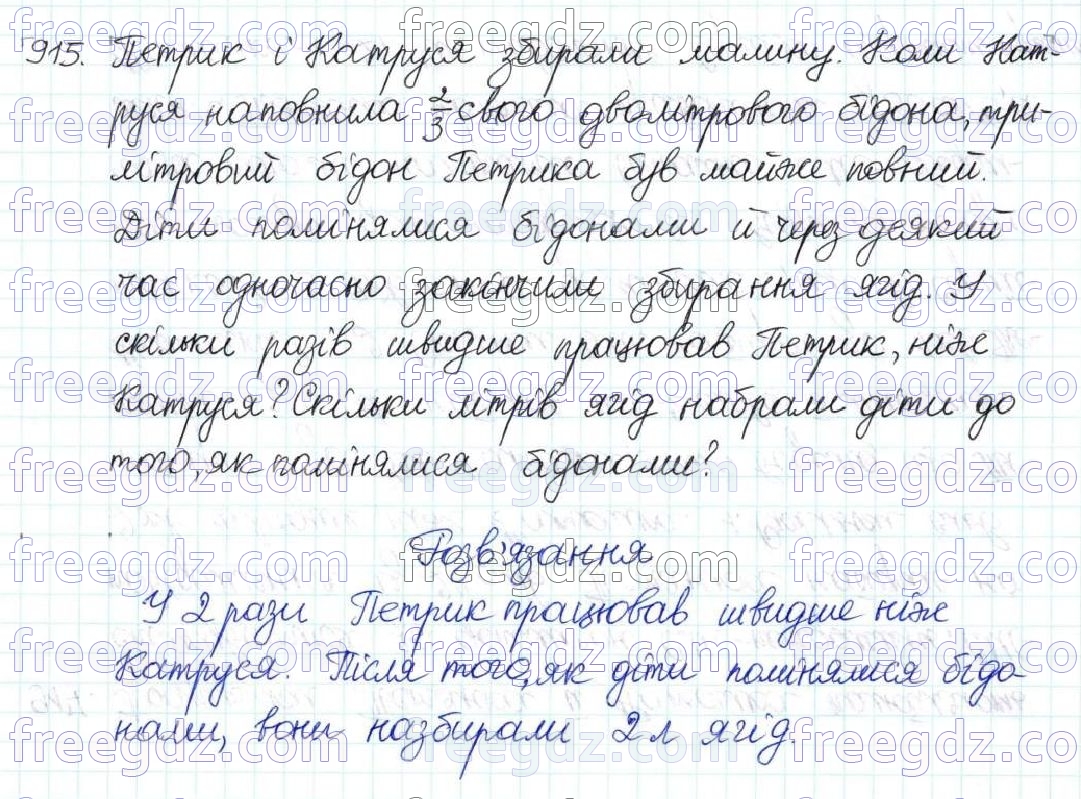 915. Петрик і Катруся збирали малину. Коли Кат-
руся наповнила 2/3 свого дволітрового бідона, три-
літровий бідон Петрика був майже повний.
Діти помінялися бідонами й через деякий
час одночасно закінчили збирання ягід. У
скільки разів швидше працював Петрик, ніж
Катруся? Скільки літрів ягід набрали діти до
того, як помінялися бідонами?
Розв'язання
У 2 рази Петрик працював швидше ніж
Катруся. Після того, як діти помінялися бідо-
нами, вони назбирали 2 л ягід.
freegdz.com